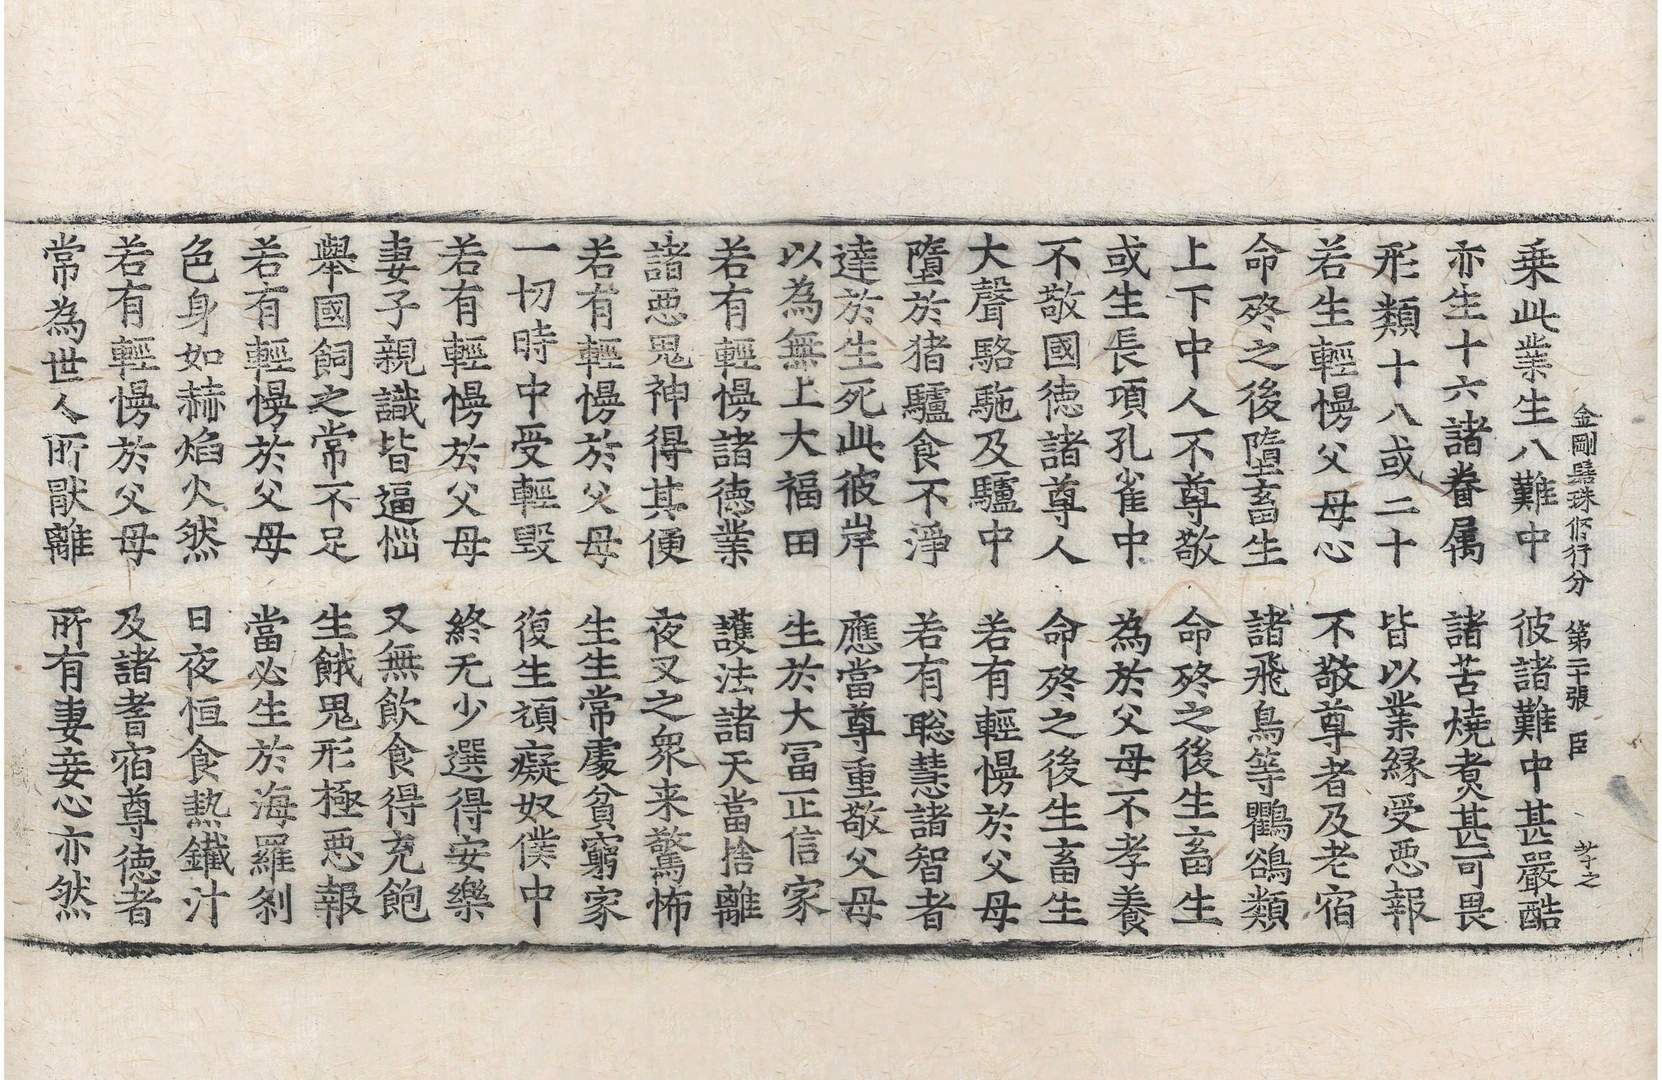 金剛髻珠修行分 第二十張 臣
乗此業生八難中 彼諸難中甚嚴酷
亦生十六諸眷属 諸苦燒煑甚可畏
形類十八或二十 皆以業縁受惡報
若生輕慢父母心 不敬尊者及老宿
命終之後墮畜生 諸飛鳥等鸜鵒類
上下中人不尊敬 命終之後生畜生
或生長項孔雀中 為於父母不孝養
不敬國德諸尊人 命終之後生畜生
大聲駱駞及驢中 若有輕慢於父母
墮於猪驢食不淨 若有聡慧諸智者
達於生死此彼岸 應當尊重敬父母
以為無上大福田 生於大冨正信家
若有輕慢諸德業 護法諸天當捨離
諸惡鬼神得其便 夜叉之衆来驚怖
若有輕慢於父母 生生常處貧窮家
一切時中受輕毀 復生頑癡奴僕中
若有輕慢於父母 終无少選得安樂
妻子親識皆逼惱 又無飲食得充飽
舉國飼之常不足 生餓鬼形極惡報
若有輕慢於父母 當必生於海羅刹
色身如赫焰火然 日夜恒食熱鐵汁
若有輕慢於父母 及諸耆宿尊德者
常為世人所猒離 所有妻妾心亦然